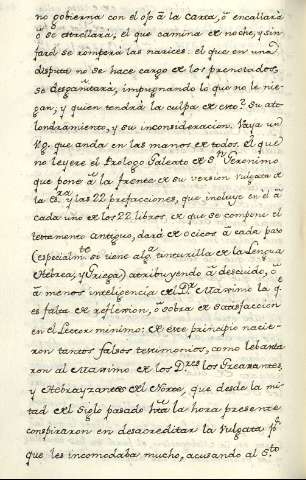 no gobierna con el ojo â la Carta, ô encallarà
ô se estrellarà; el que camina de noche, y sin
farol se romperà las narices: el que en una
disputa no se hace cargo de los prenotados,
se desgañitarà, impugnando lo que no le nie-
gan; y quien tendrà la culpa de esto? Su ato-
londramiento, y su inconsideracion. Vaya un
vg. que anda en las manos de todos. El que
no leyere el Prologo Galeato de Sn. Geronimo
que pone â la frente de su version Vulgata de
la Sa. y las 22 prefacciones, que incluye en el â
cada uno de los 22 libros de que se compone el
testamento Antiguo, darà de ocicos â cada paso
(especialmte. si tiene alga. tinturilla de la Lengua
Hebrea, y Griega) atribuyendo â descuido, ô
â menos inteligencia del Dr. Maximo la q.
es falta de reflexion, ô sobra de satisfaccion
en el Lector minimo: de este principio nacie-
ron tantos falsos testimonios, como lebanta-
ron al Maximo de los Dres. los Greazantes,
y Hebrayzantes del Norte, que desde la mi-
tad del Siglo pasado hta. la hora presente
conspiraron en desacreditar la Vulgata pr.
que les incomodaba mucho, acusando al Sto.